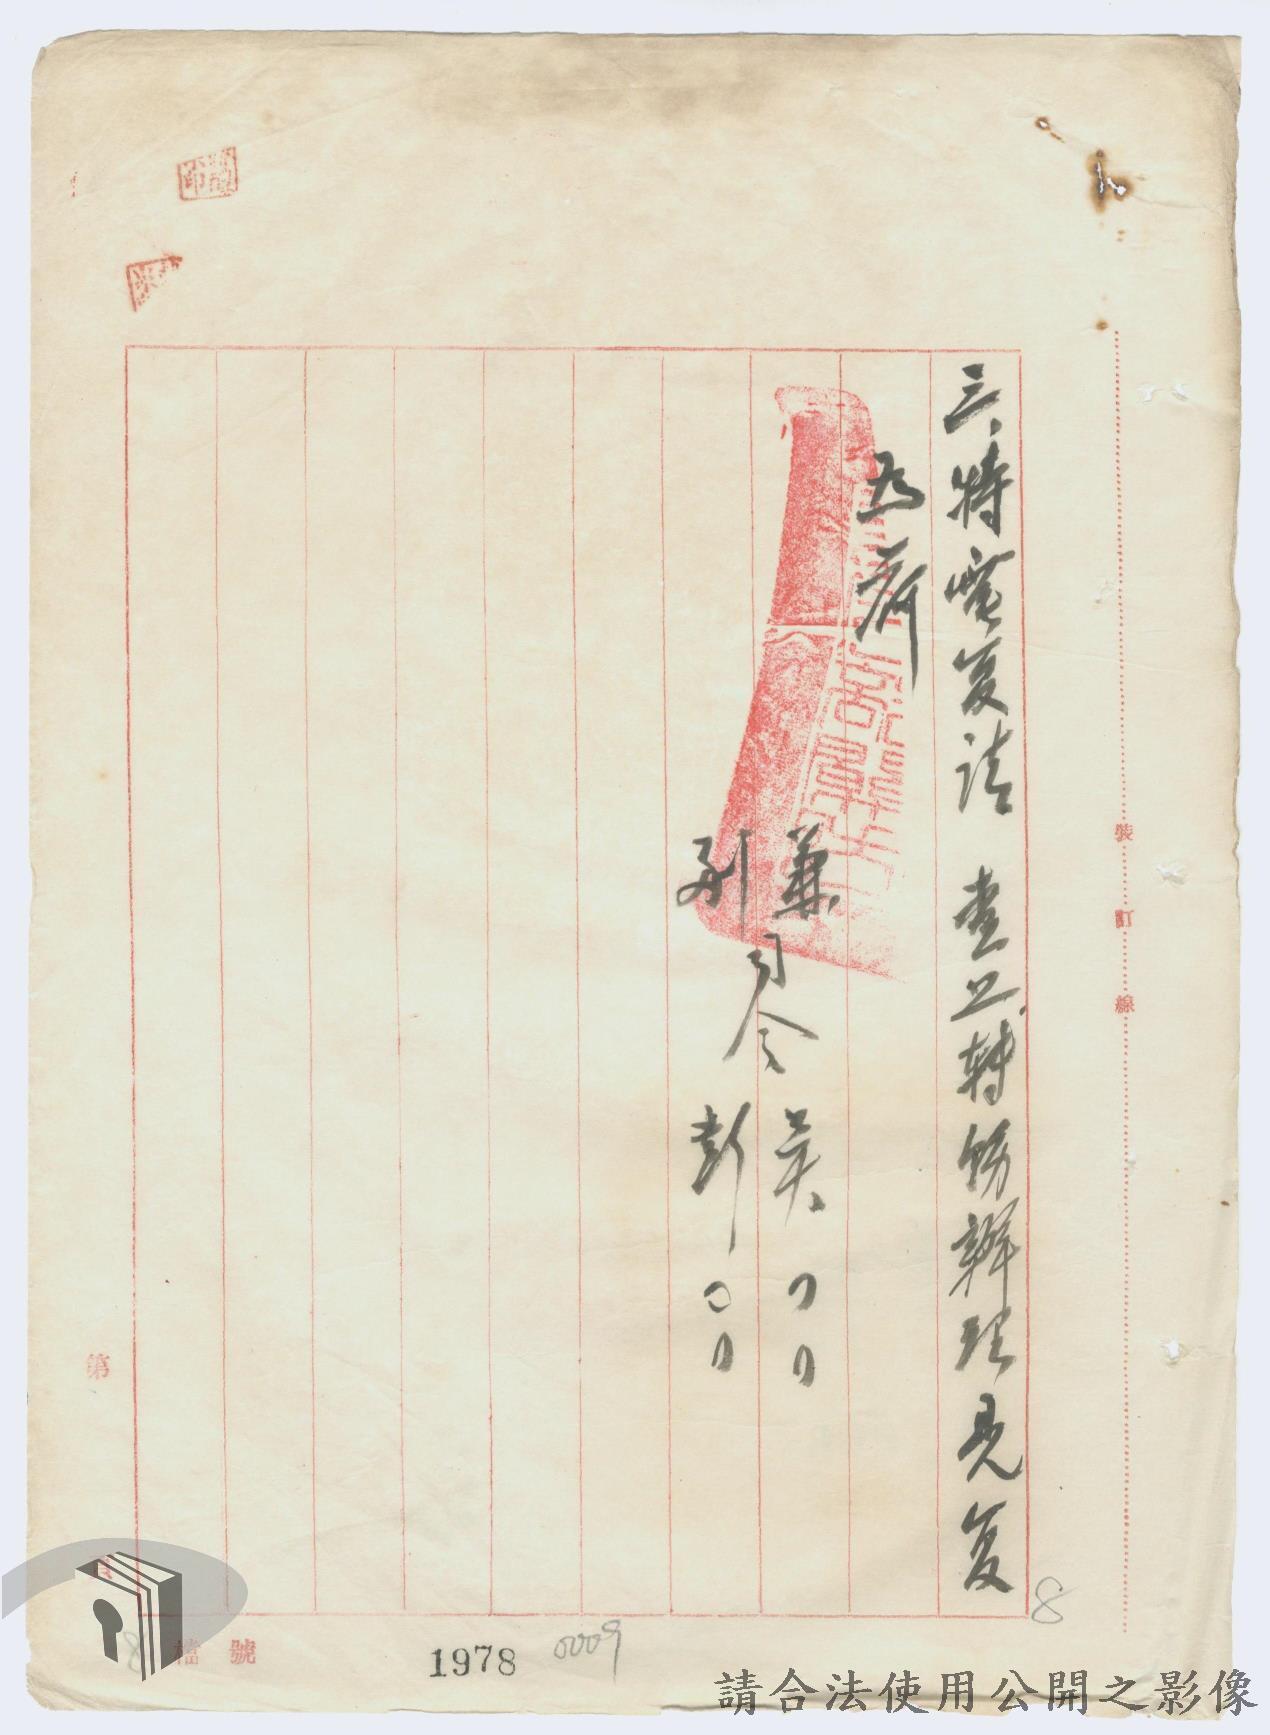 三、特電复請　查照轉飭辦理見复
為荷
兼
副
司令
吳〇〇
彭〇〇
裝訂線
第
檔號
1978
0009
8
請合法使用公開之影像